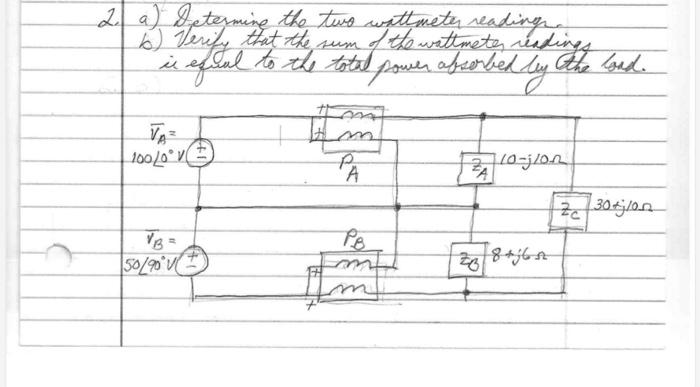 2. a) Determine the two wattmeter readings.
b) Verify that the sum of the wattmeter readings
is equal to the total power absorbed by the load.
V̅A =
100∠0° V
+
-
+
+
PA
ZA
10-j10Ω
ZC
30+j10Ω
V̅B =
50∠90° V
+
-
PB
+
+
ZB
8+j6Ω